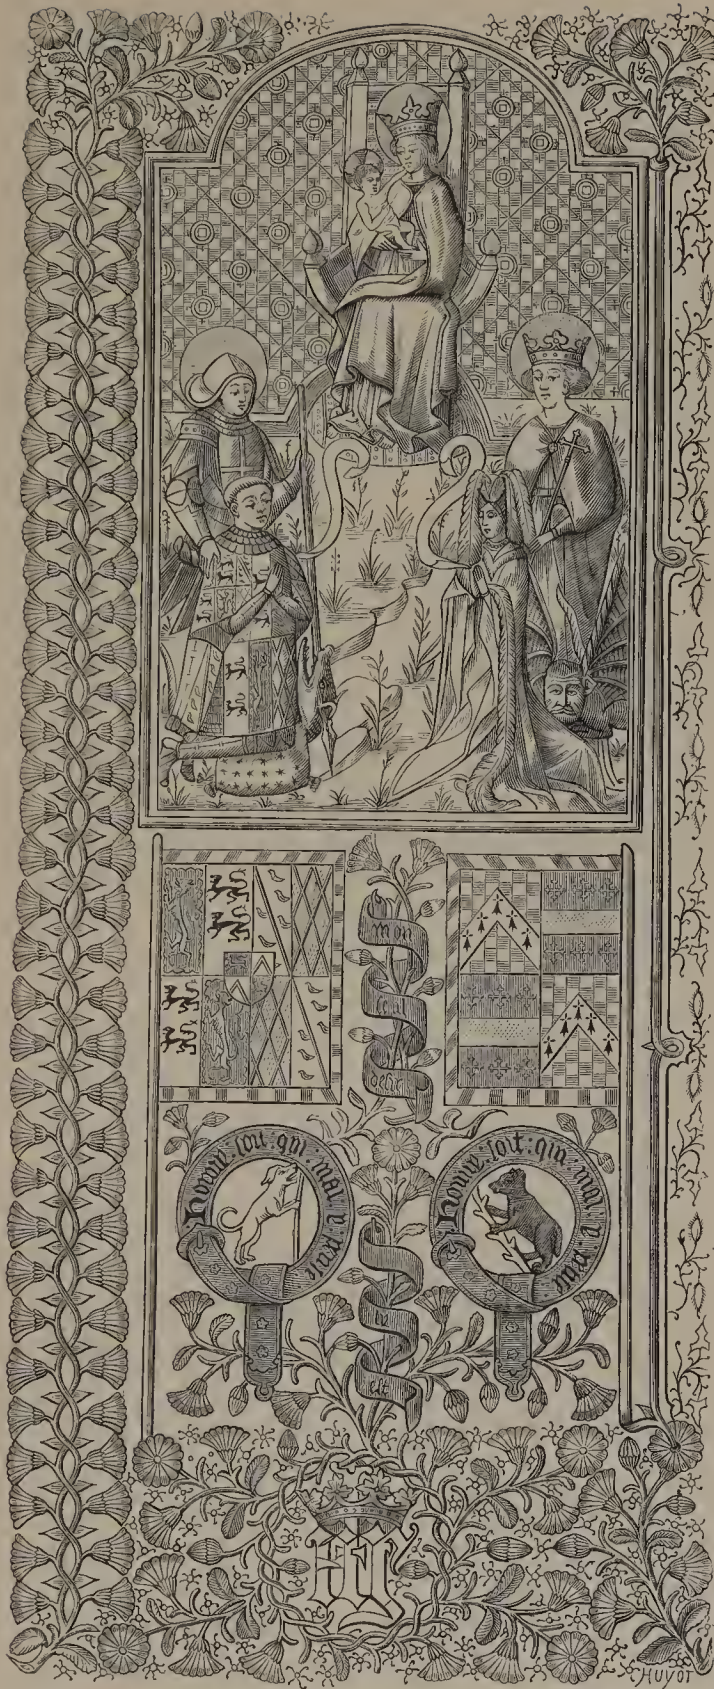 mon
seul
Honny : soit : qui · mal · y · pense
Honny : soit : qui · mal · y · pense
est
HUYOT